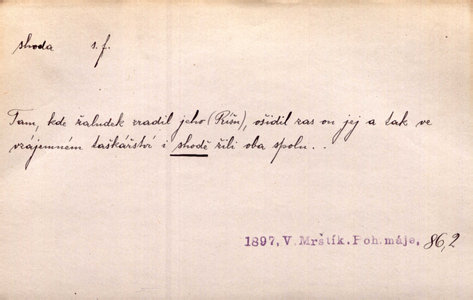 shoda s. f.
Tam, kde žaludek zradil jeho (Ríšu), ošidil zas on jej a tak ve
vzájemném taškářství i shodě žili oba spolu..
1897, V. Mrštík. Poh. máje, 86,2